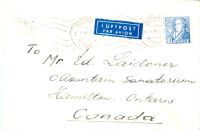 LUFTPOST
PAR AVION
To Mr Ed Laidoner
Mountain Sanatorium
Hamilton. Ontario
Canada